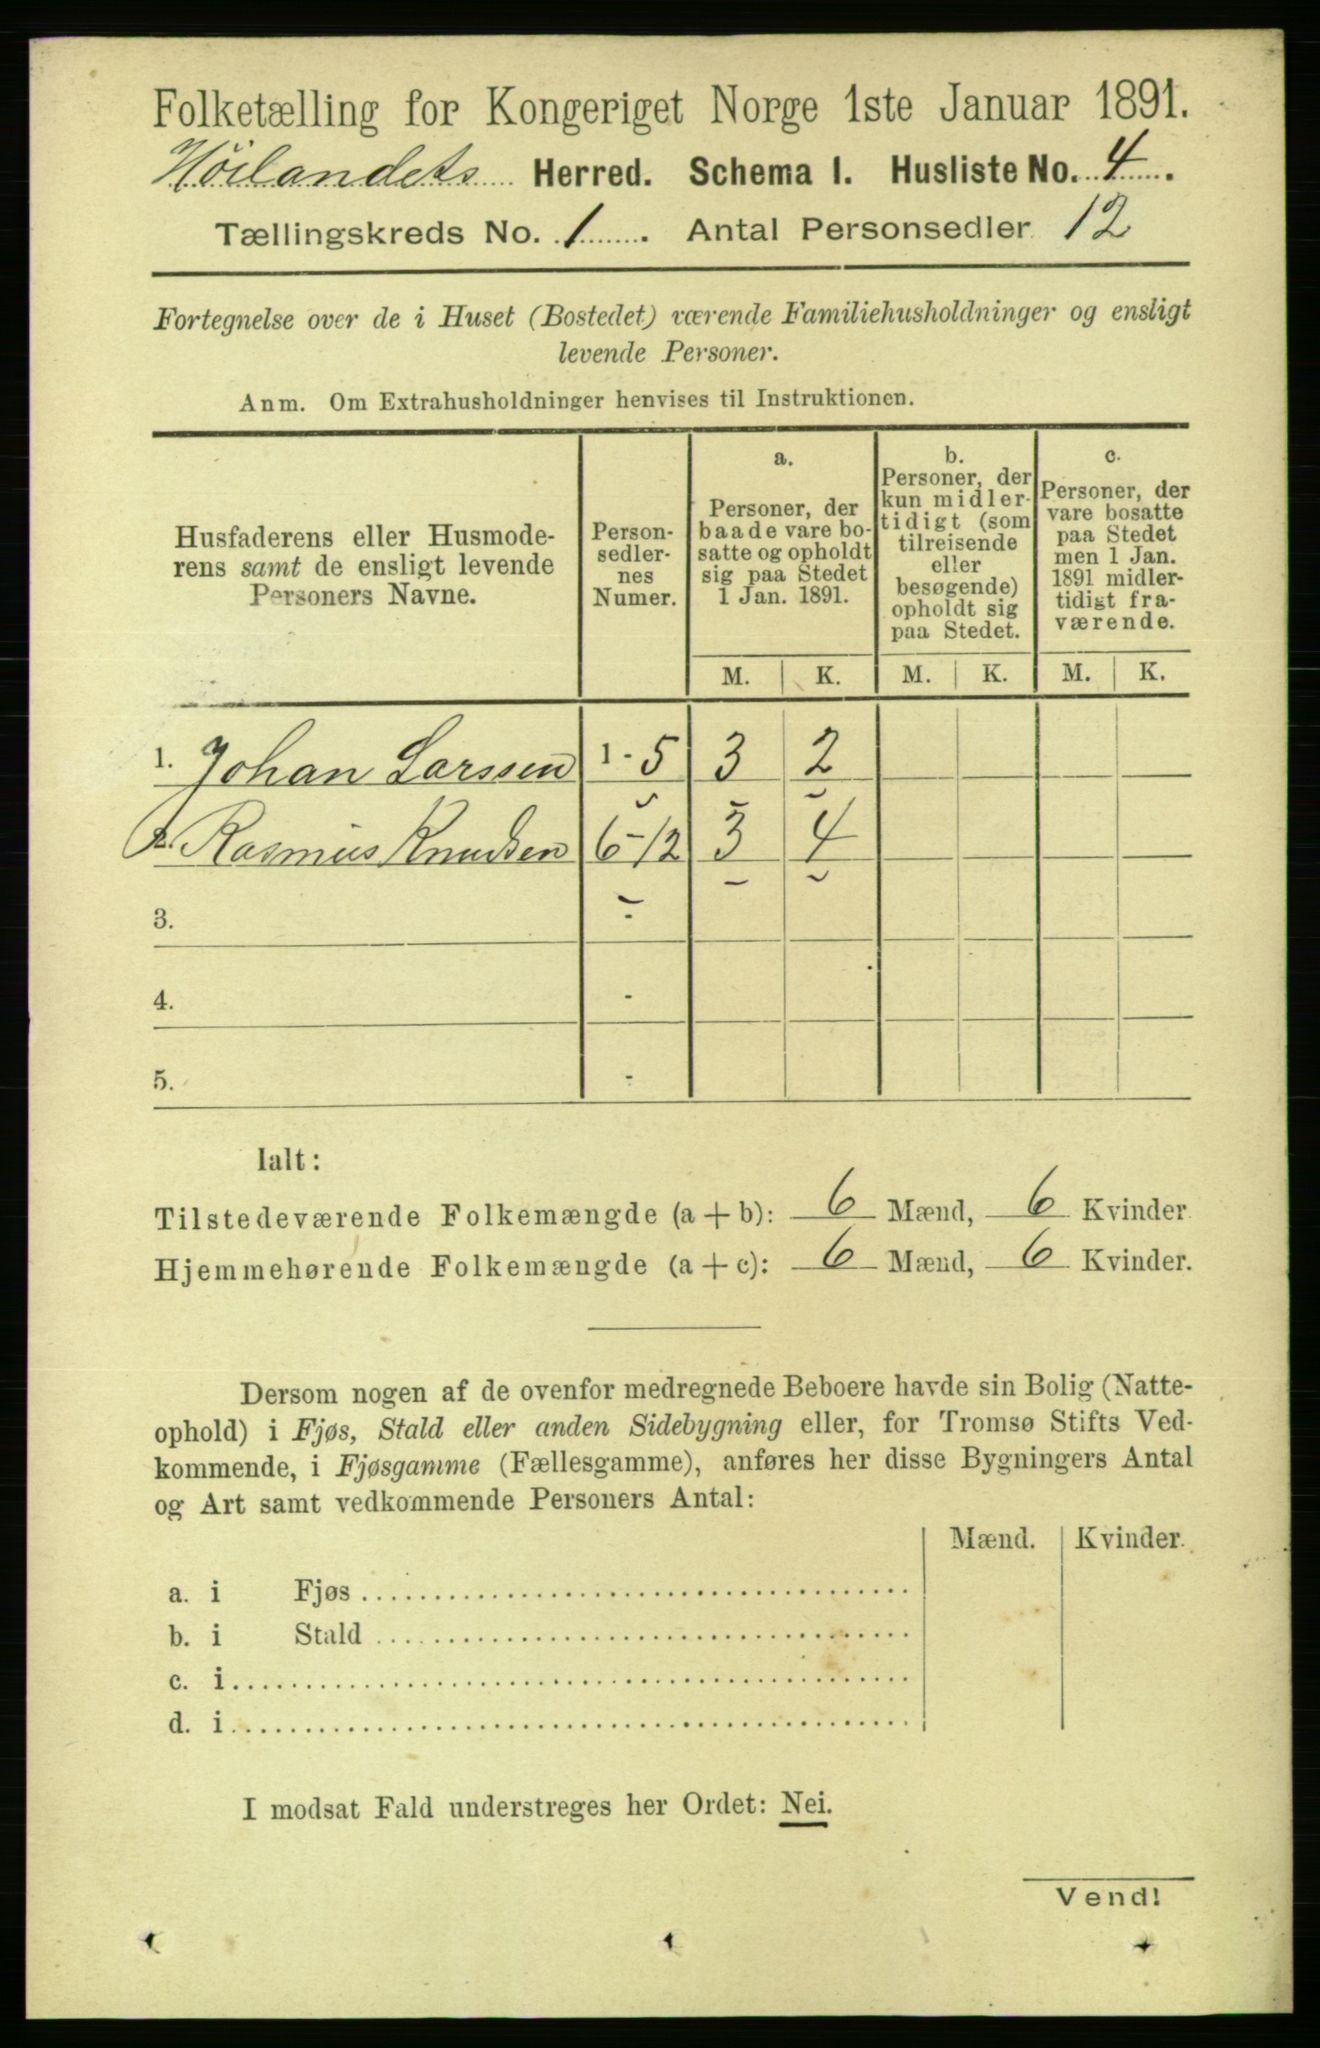 Folketælling for Kongeriget Norge 1ste Januar 1891.
Höilandets Herred. Schema I. Husliste No. 4.
Tællingskreds No. 1. Antal Personsedler 12
Fortegnelse over de i Huset (Bostedet) værende Familiehusholdninger og ensligt
levende Personer.
Anm. Om Extrahusholdninger henvises til Instruktionen.
Husfaderens eller Husmode-
rens samt de ensligt levende
Personers Navne.
Person-
sedler-
nes
Numer.
a.
Personer, der
baade vare bo-
satte og opholdt
sig paa Stedet
1 Jan. 1891.
b.
Personer, der
kun midler-
tidigt (som
tilreisende
eller
besøgende)
opholdt sig
paa Stedet.
c.
Personer, der
vare bosatte
paa Stedet
men 1 Jan.
1891 midler-
tidigt fra-
værende.
M. K. M. K. M. K.
1. Johan Larssen 1 - 5 3 2
2. Rasmus Knudsen 6-12 3 4
3. -
4. -
5. -
Ialt:
Tilstedeværende Folkemængde (a + b): 6 Mænd, 6 Kvinder
Hjemmehørende Folkemængde (a + c): 6 Mænd, 6 Kvinder.
Dersom nogen af de ovenfor medregnede Beboere havde sin Bolig (Natte-
ophold) i Fjøs, Stald eller anden Sidebygning eller, for Tromsø Stifts Ved-
kommende, i Fjøsgamme (Fællesgamme), anføres her disse Bygningers Antal
og Art samt vedkommende Personers Antal:
Mænd. Kvinder.
a. i Fjøs
b. i Stald
c. i
d. i
I modsat Fald understreges her Ordet: Nei.
Vend!